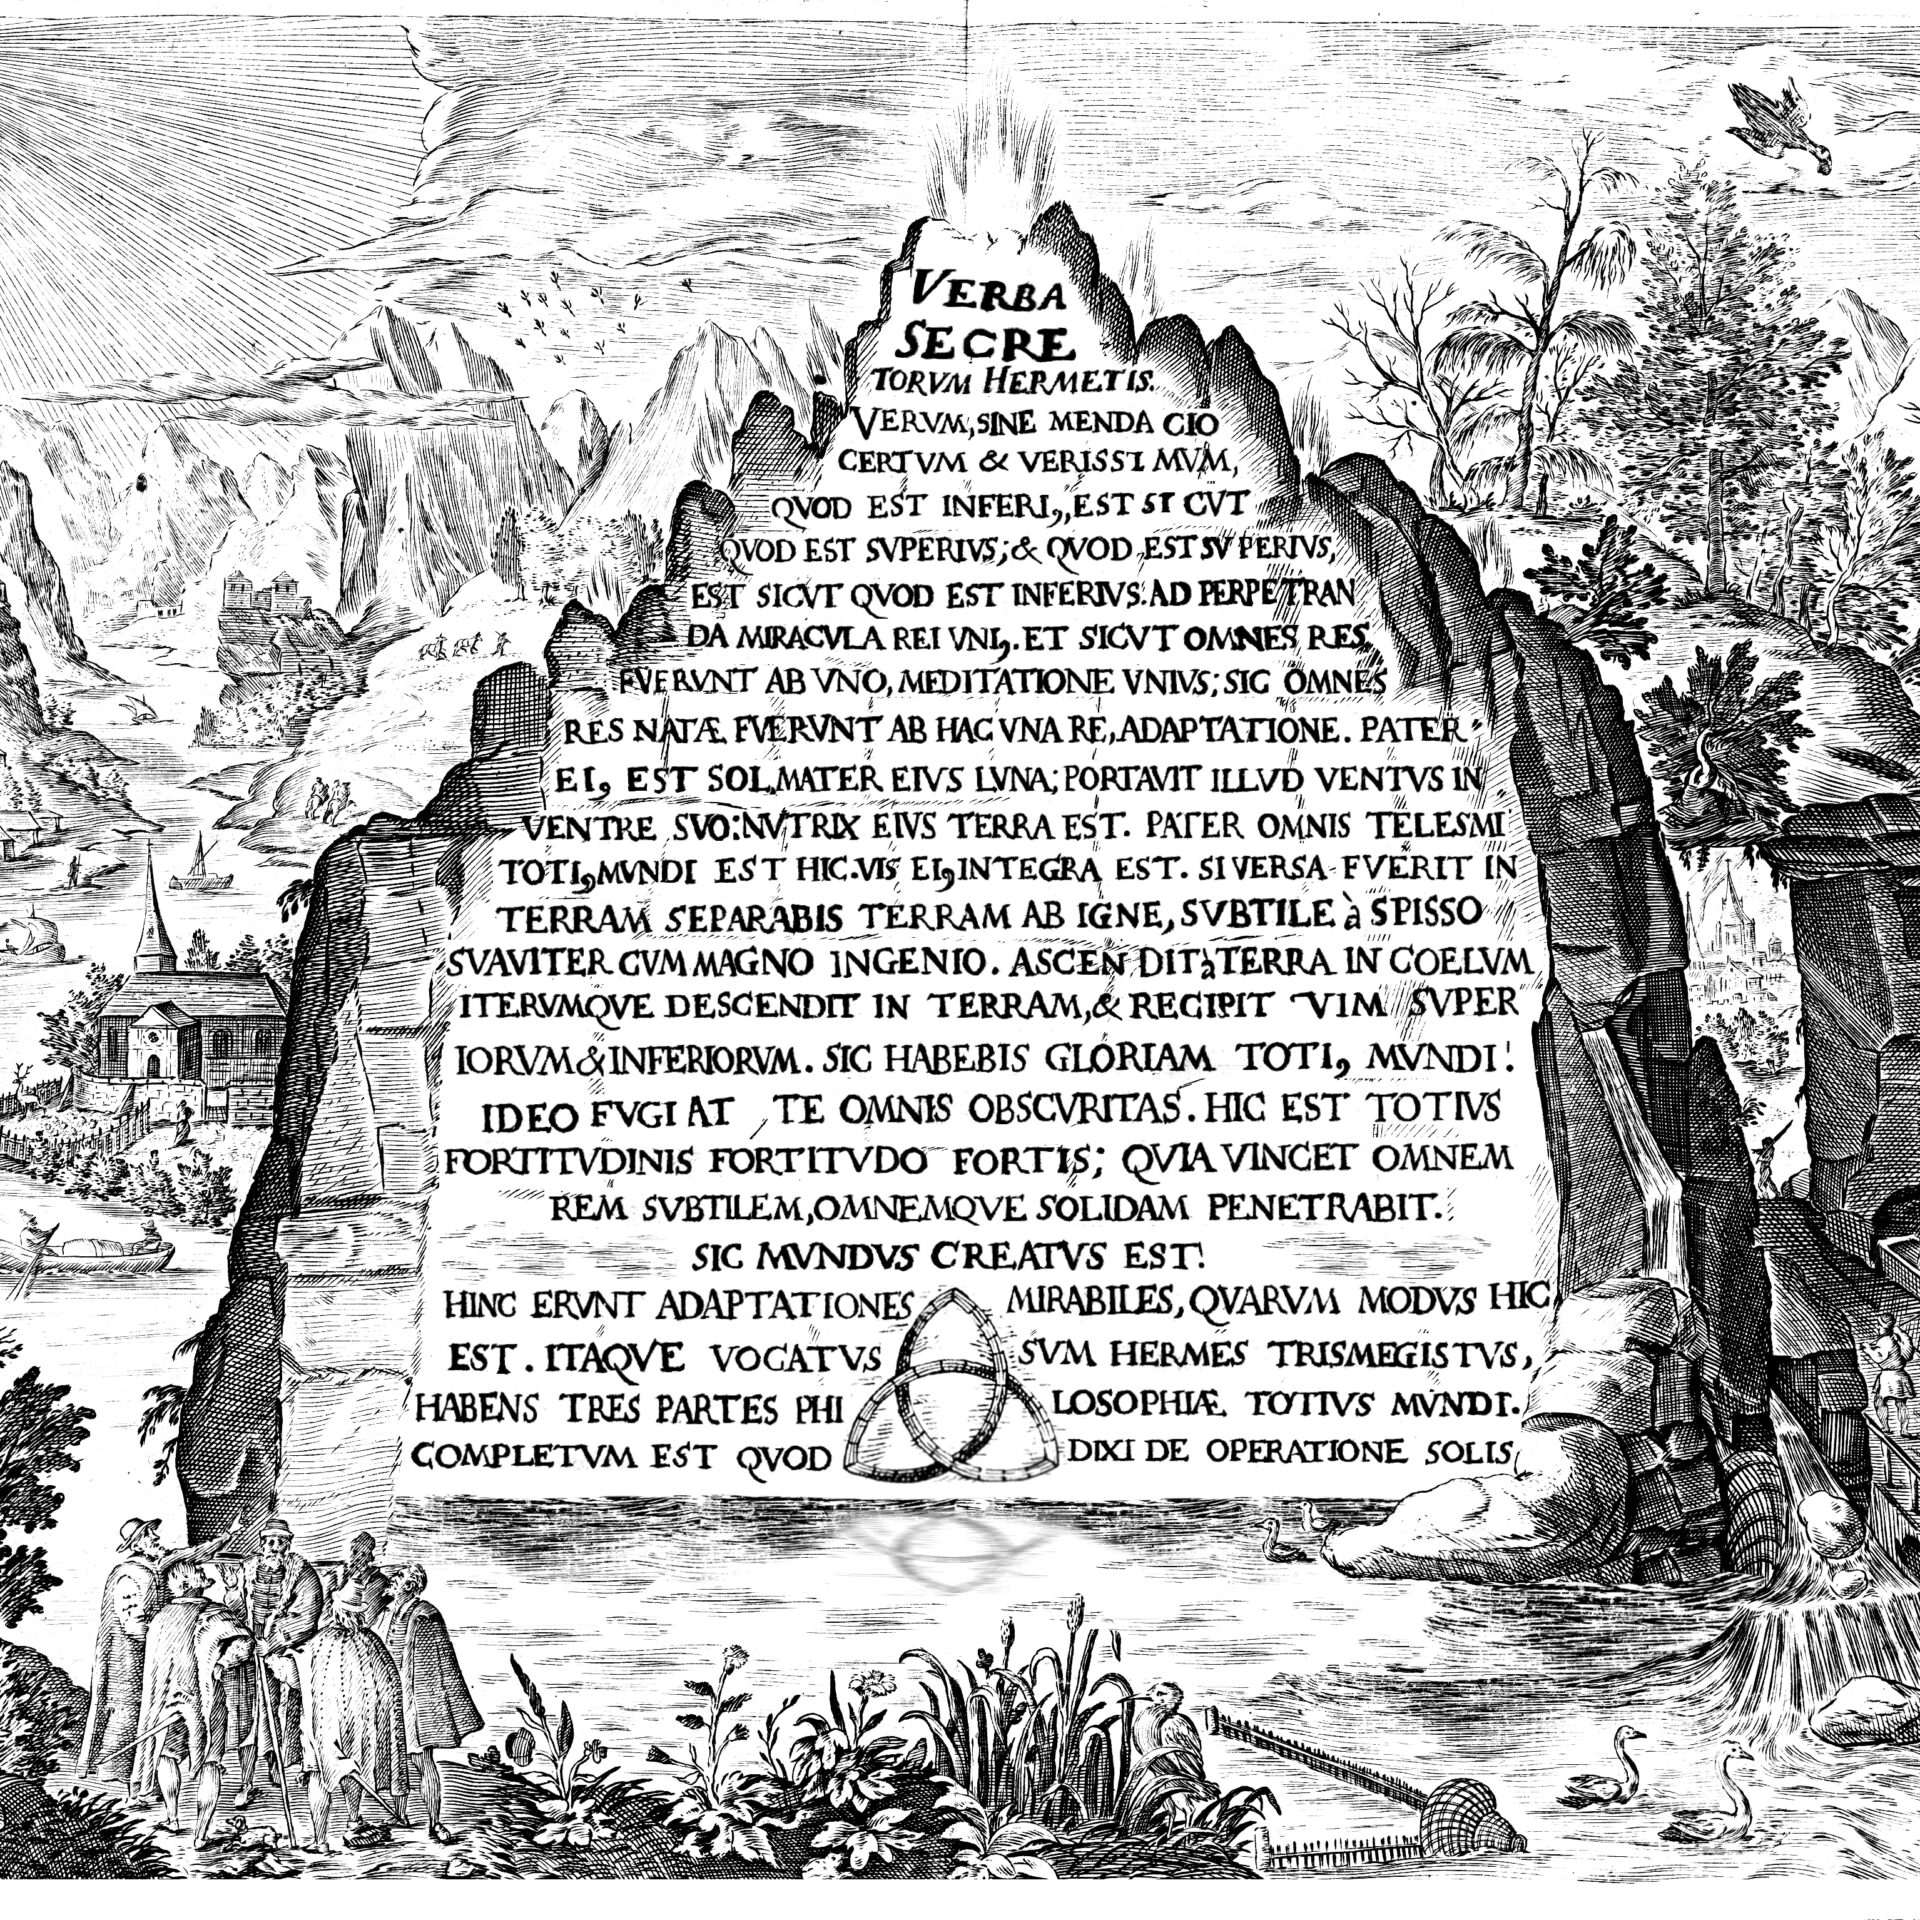 VERBA
SECRE
TORVM HERMETIS.
VERVM, SINE MENDA CIO
CERTVM & VERISSI MVM,
QVOD EST INFERIꝰ, EST SI CVT
QVOD EST SVPERIVS; & QVOD EST SV PERIVS,
EST SICVT QVOD EST INFERIVS. AD PERPETRAN
DA MIRACVLA REI VNIꝰ. ET SICVT OMNES RES
FVERVNT AB VNO, MEDITATIONE VNIVS; SIC OMNES
RES NATÆ FVERVNT AB HAC VNA RE, ADAPTATIONE. PATER
EIꝰ EST SOL, MATER EIVS LVNA; PORTAVIT ILLVD VENTVS IN
VENTRE SVO: NVTRIX EIVS TERRA EST. PATER OMNIS TELESMI
TOTIꝰ MVNDI EST HIC. VIS EIꝰ INTEGRA EST. SI VERSA FVERIT IN
TERRAM SEPARABIS TERRAM AB IGNE, SVBTILE à SPISSO
SVAVITER CVM MAGNO INGENIO. ASCEN DIT à TERRA IN COELVM
ITERVMQVE DESCENDIT IN TERRAM, & RECIPIT VIM SVPER
IORVM & INFERIORVM. SIC HABEBIS GLORIAM TOTIꝰ MVNDI!
IDEO FVGI AT TE OMNIS OBSCVRITAS. HIC EST TOTIVS
FORTITVDINIS FORTITVDO FORTIS; QVIA VINCET OMNEM
REM SVBTILEM, OMNEMQVE SOLIDAM PENETRABIT.
SIC MVNDVS CREATVS EST!
HINC ERVNT ADAPTATIONES MIRABILES, QVARVM MODVS HIC
EST. ITAQVE VOCATVS SVM HERMES TRISMEGISTVS,
HABENS TRES PARTES PHI LOSOPHIÆ TOTIVS MVNDI.
COMPLETVM EST QVOD DIXI DE OPERATIONE SOLIS